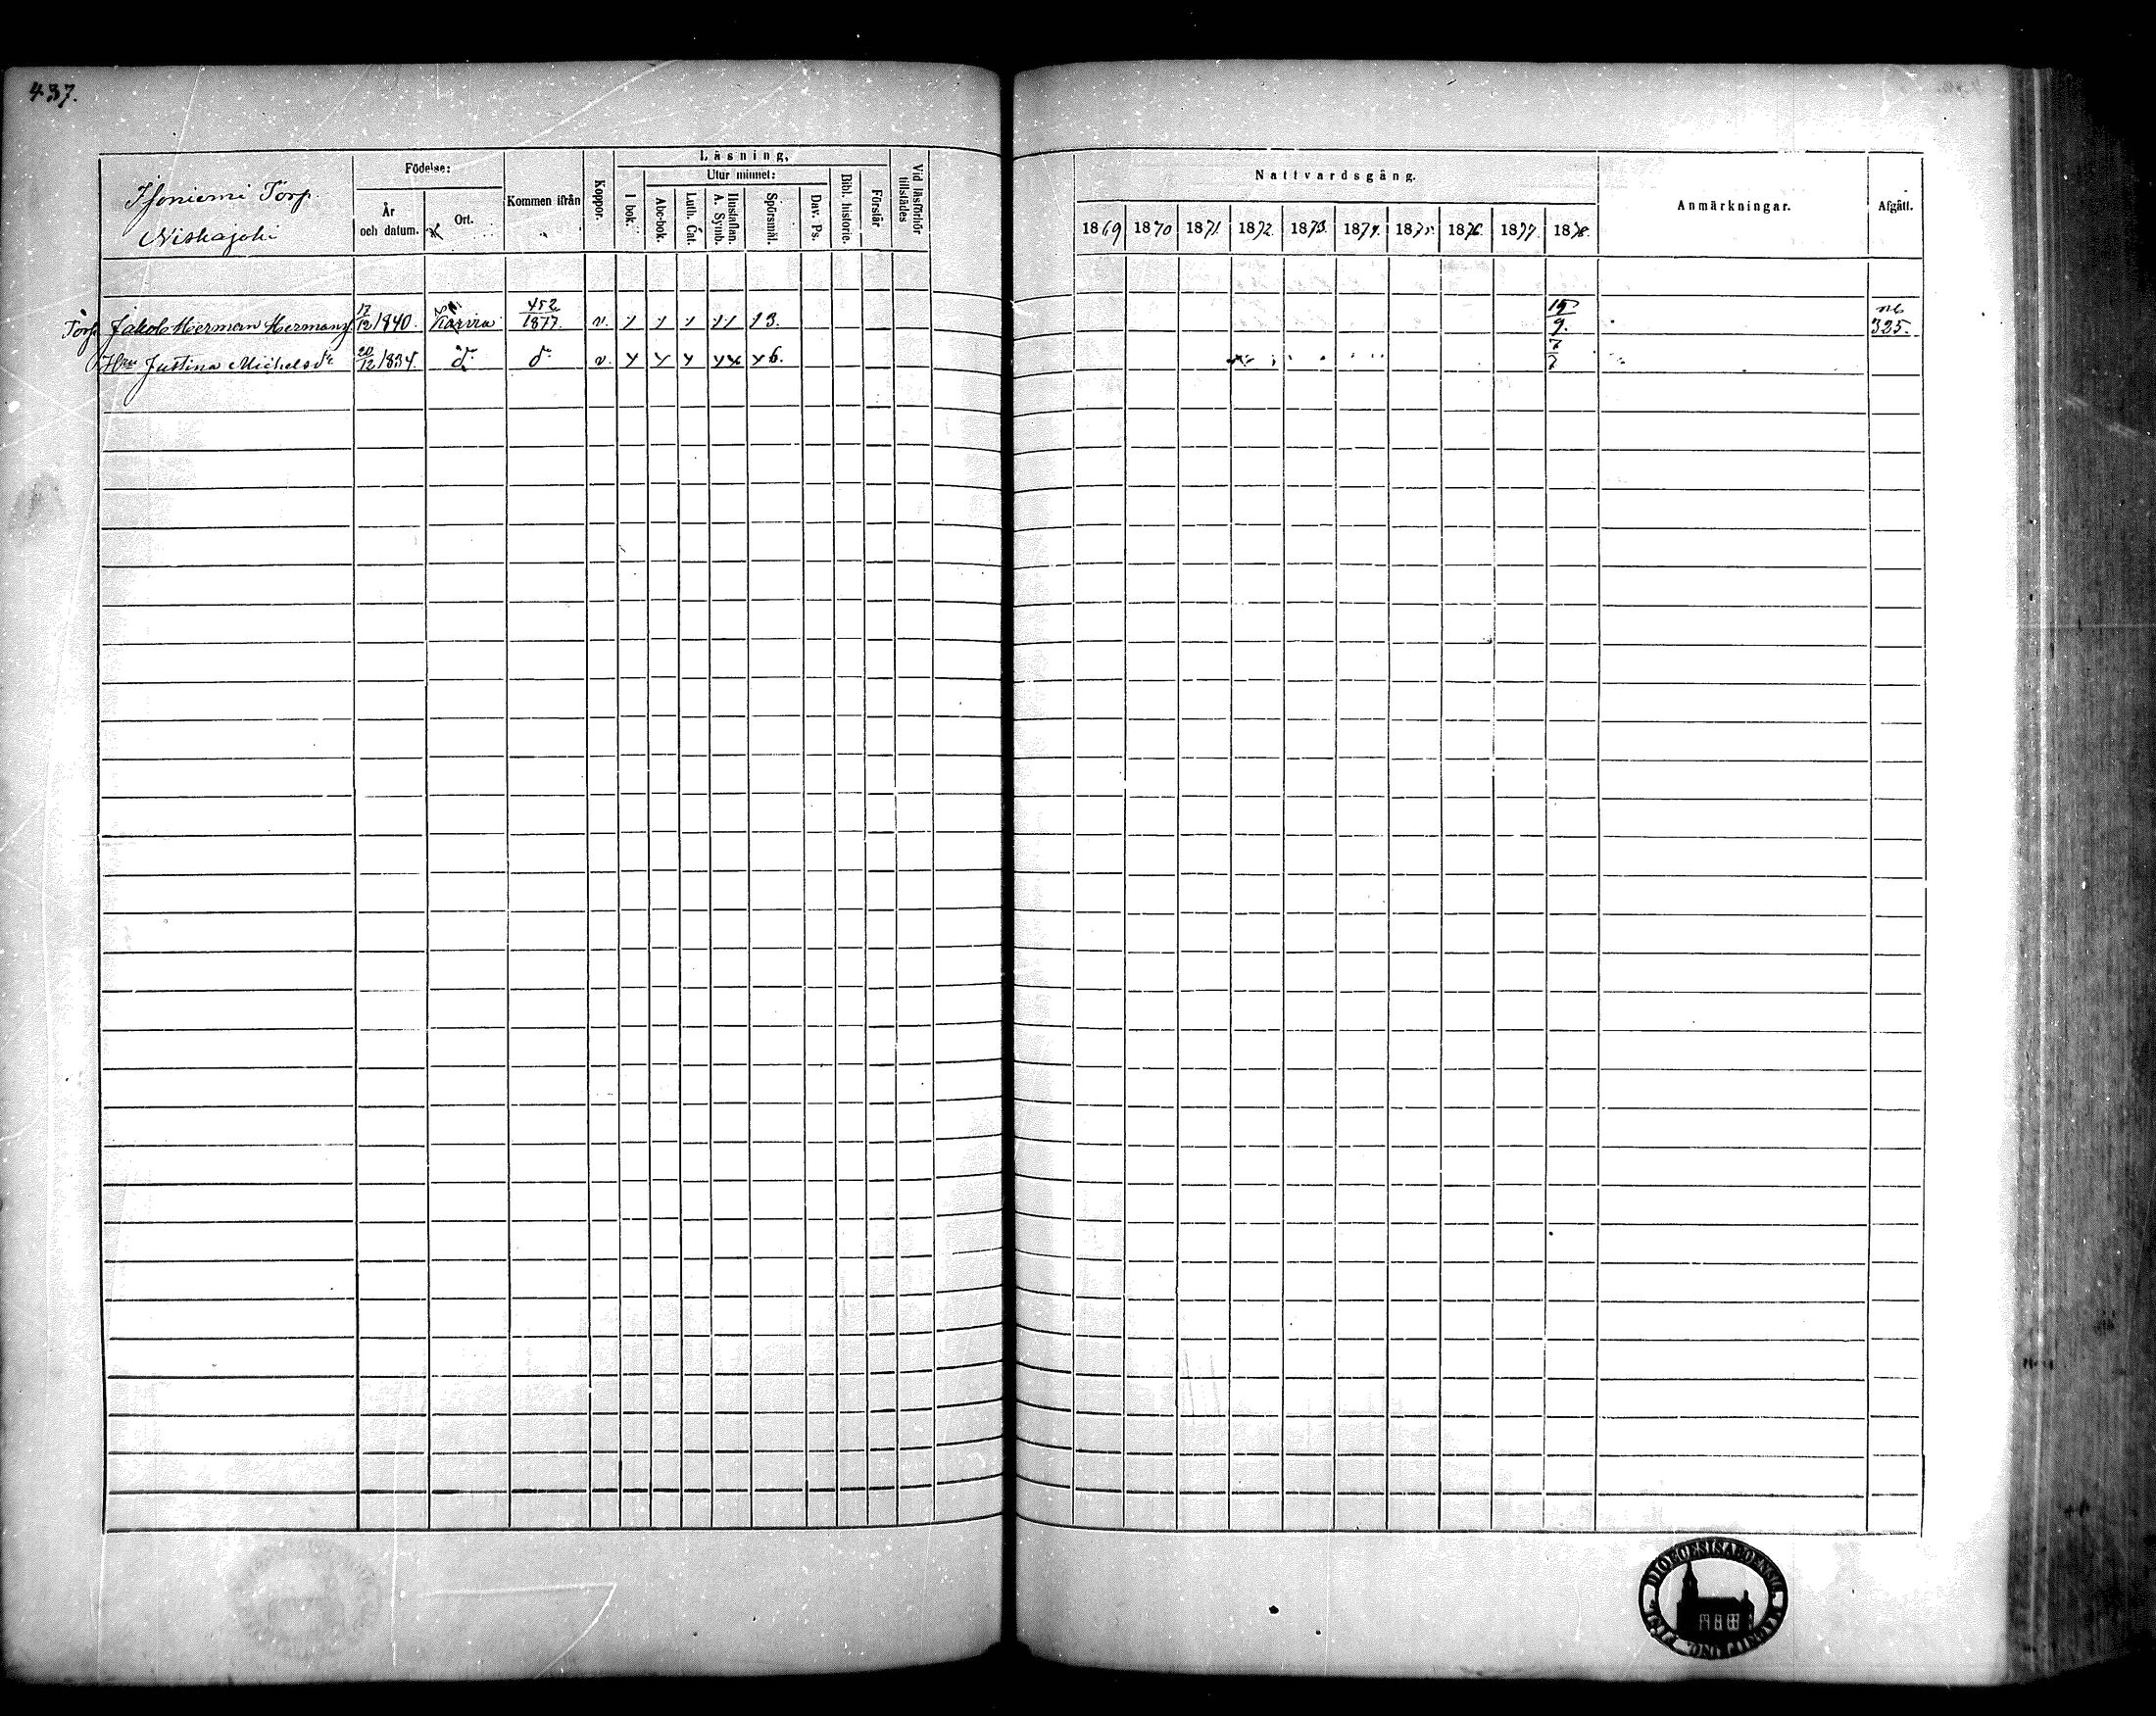 437.
Isoniemi Torp.
Niskajoki
Födelse:
År och datum.
Ort.
Kommen ifrån
Koppor.
Läsning,
I bok.
Utur minnet:
Abc-bok.
Luth. Cat.
Hustaflan. A. Symb.
Spörsmål.
Dav. Ps.
Bibl. historie.
Förstår
Vid läsförhör tillstädes
Nattvardsgång.
1869 1870 1871 1872 1873 1874 1875 1876 1877 1878
Anmärkningar.
Afgått.
Torp. Jakob Herman Hermans 17/12 1840. Karvia 452/1877. v. 13. 15/9. 325.
Hru Justina Michelsdr 20/12 1834. d:o d:o v. 6. 7/7